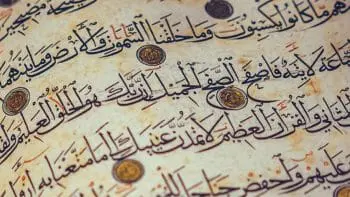 مصبحين
ما كانوا يكسبون وما خلقنا السموت والأرض وما بينهما
لآتية فاصفح الصفح الجميل إن ربك هو الخلق العليم ولقد
المثاني والقرآن العظيم لا تمدن عينيك إلى ما متعنا به
عليهم واخفض جناحك